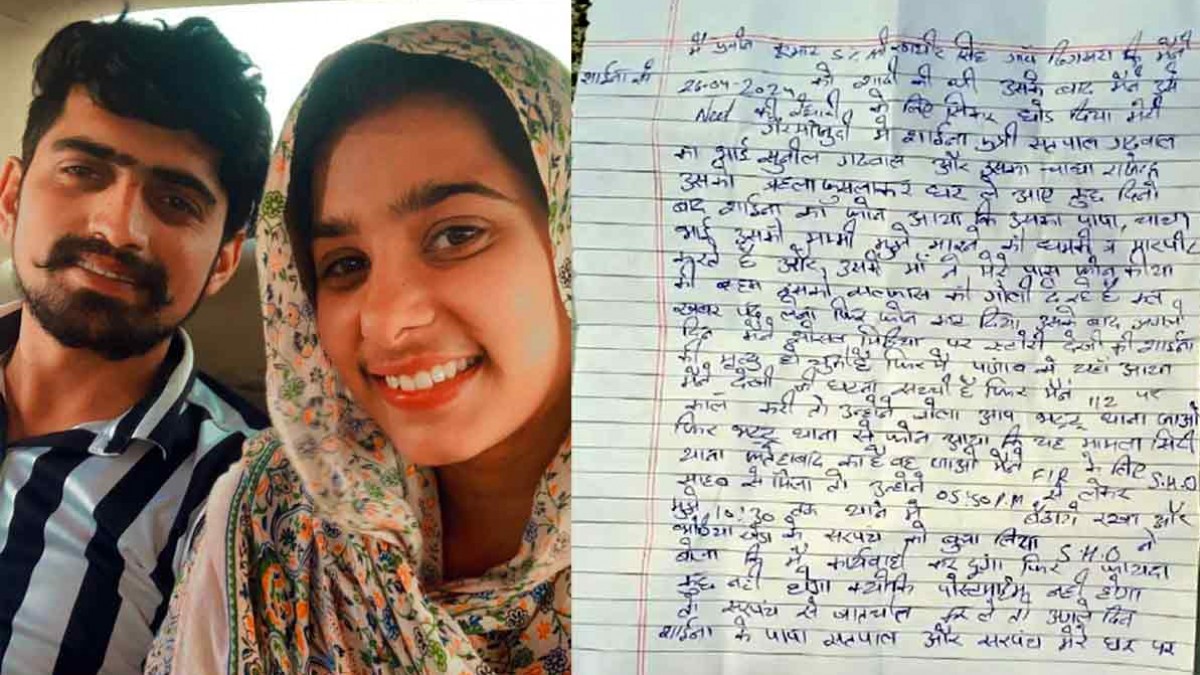 मैं कुमार S/. श्री सिंह गाँव की मैंने
26-04-2024 को शादी की थी उसके बाद मैंने उसे
Need की तैयारी के लिए सिकर छोड दिया मेरी
गैरमौजुदी मे शाईना पुत्री सतपाल गढवाल
का भाई सुनील गढवाल और इसका चाचा
उसको बहला फुसलाकर घर ले आए कुछ दिनो
बाद शाईना का फोन आया कि उसका पापा, चाचा
भाई उसकी मम्मी मुझे मारने की धमकी व मारपीट
करते है और उसकी माँ ने मेरे पास फोन कीया
की हम इसको सल्फास की गोली दे रहे है कल
खबर पढ़ लेना फिर फोन काट दिया उसके बाद अगले
दिन मैंने सोसल मिडिया पर स्टोरी देखी की शाईना
की मृत्यु हो चुकी है फिर मै पंजाब से यहाँ आया
मैंने देखी की घटना सच्ची है फिर मैंने 112 पर
काल करी तो उन्होने बोला आप भट्टू थाना जाओ
फिर भट्टू थाना से फोन आया कि यह मामला सिटी
थाना फतेहाबाद का है वह जाओ मैंने FIR के लिए S.H.O
साहब से मिला तो उन्होने 05:50 P.M से लेकर
मुझे 10:30 तक थाने मे बैठाये रखा और
खेडा के सरपंच को बुला लिया S.H.O ने
बोला कि मै कार्यवाही कर दूंगा फिर फायदा
कुछ नही होगा क्योंकि पोस्टमार्टम नही होगा
तो सरपंच से बातचीत कर ले तो अगले दिन
शाईना के पापा सतपाल और सरपंच मेरे घर पर